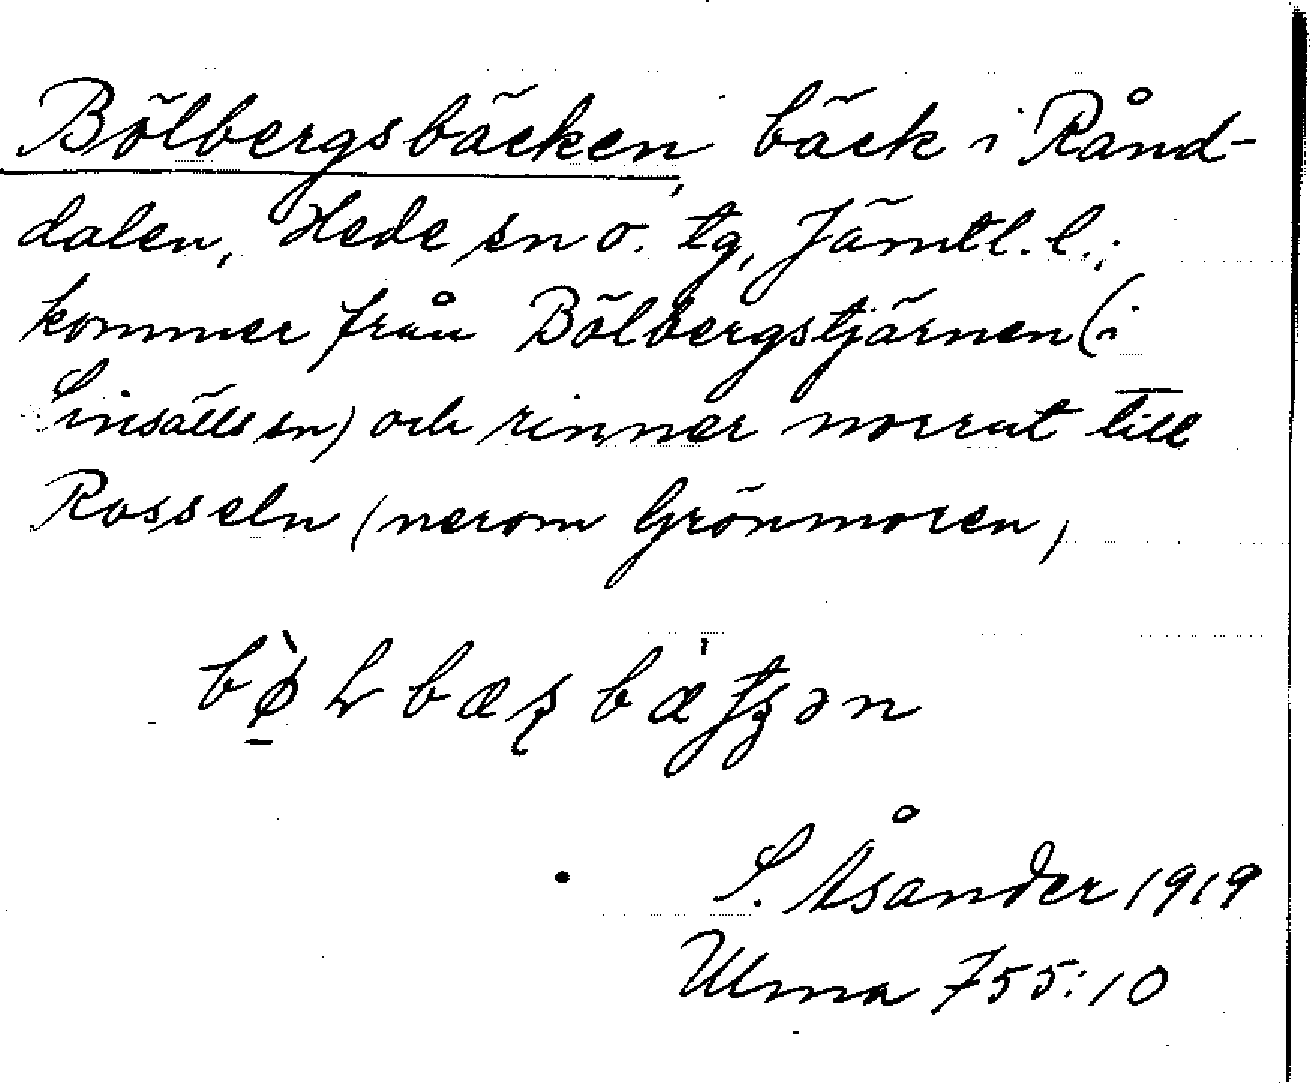 Bölbergsbäcken, bäck i Rånd-
dalen, Hede sn o. tg, Jämtl. l.;
kommer från Bölbergstjärnen (i
Linsälls sn) och rinner norrut till
Rosseln (nerom Grönmoren)
S. Åsander 1919
Ulma 755:10